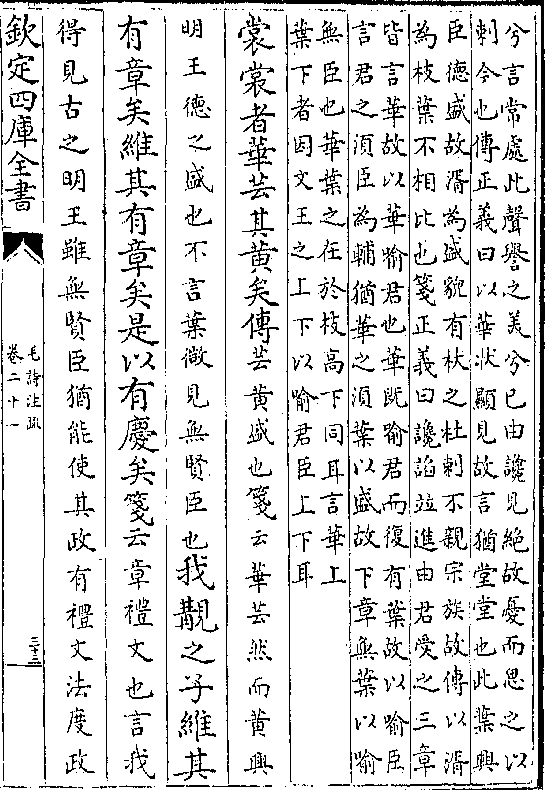 兮言常處此聲譽之美兮已由讒見絶故憂而思之以
刺今也傳正義曰以華狀顯見故言猶堂堂也此葉興
臣德盛故湑為盛貌有杕之杜刺不親宗族故傳以湑
為枝葉不相比也箋正義曰讒諂並進由君受之三章
皆言華故以華喻君也華既喻君而復有葉故以喻臣
言君之須臣為輔猶華之須葉以盛故下章無葉以喻
無臣也華葉之在於枝高下同耳言華上
葉下者因文王之上下以喻君臣上下耳
裳裳者華芸其黄矣傳芸黄盛也箋云華芸然而黄興
明王德之盛也不言葉微見無賢臣也我覯之子維其
有章矣維其有章矣是以有慶矣箋云章禮文也言我
得見古之明王雖無賢臣猶能使其政有禮文法度政
欽定四庫全書
毛詩注疏
卷二十一
三十三